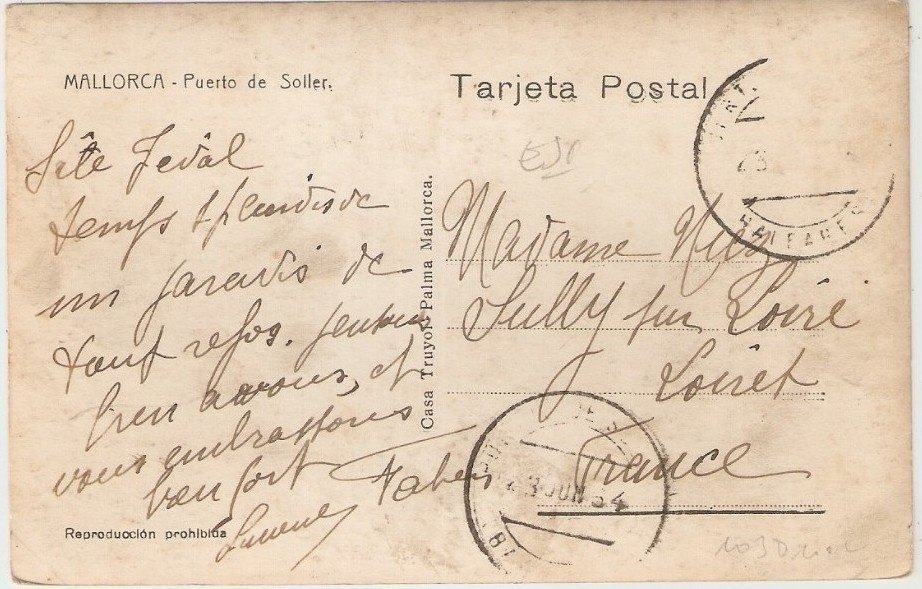 MALLORCA - Puerto de Soller.
Tarjeta Postal
Site Idéal
temps splendide
un paradis de
tout repos. pensons
bien à vous, et
vous embrassons
bien fort
Reproducción prohibida
Casa Truyol-Palma Mallorca.
Madame
Sully sur Loire
Loiret
France
23
BALEARES
23 JUN 34